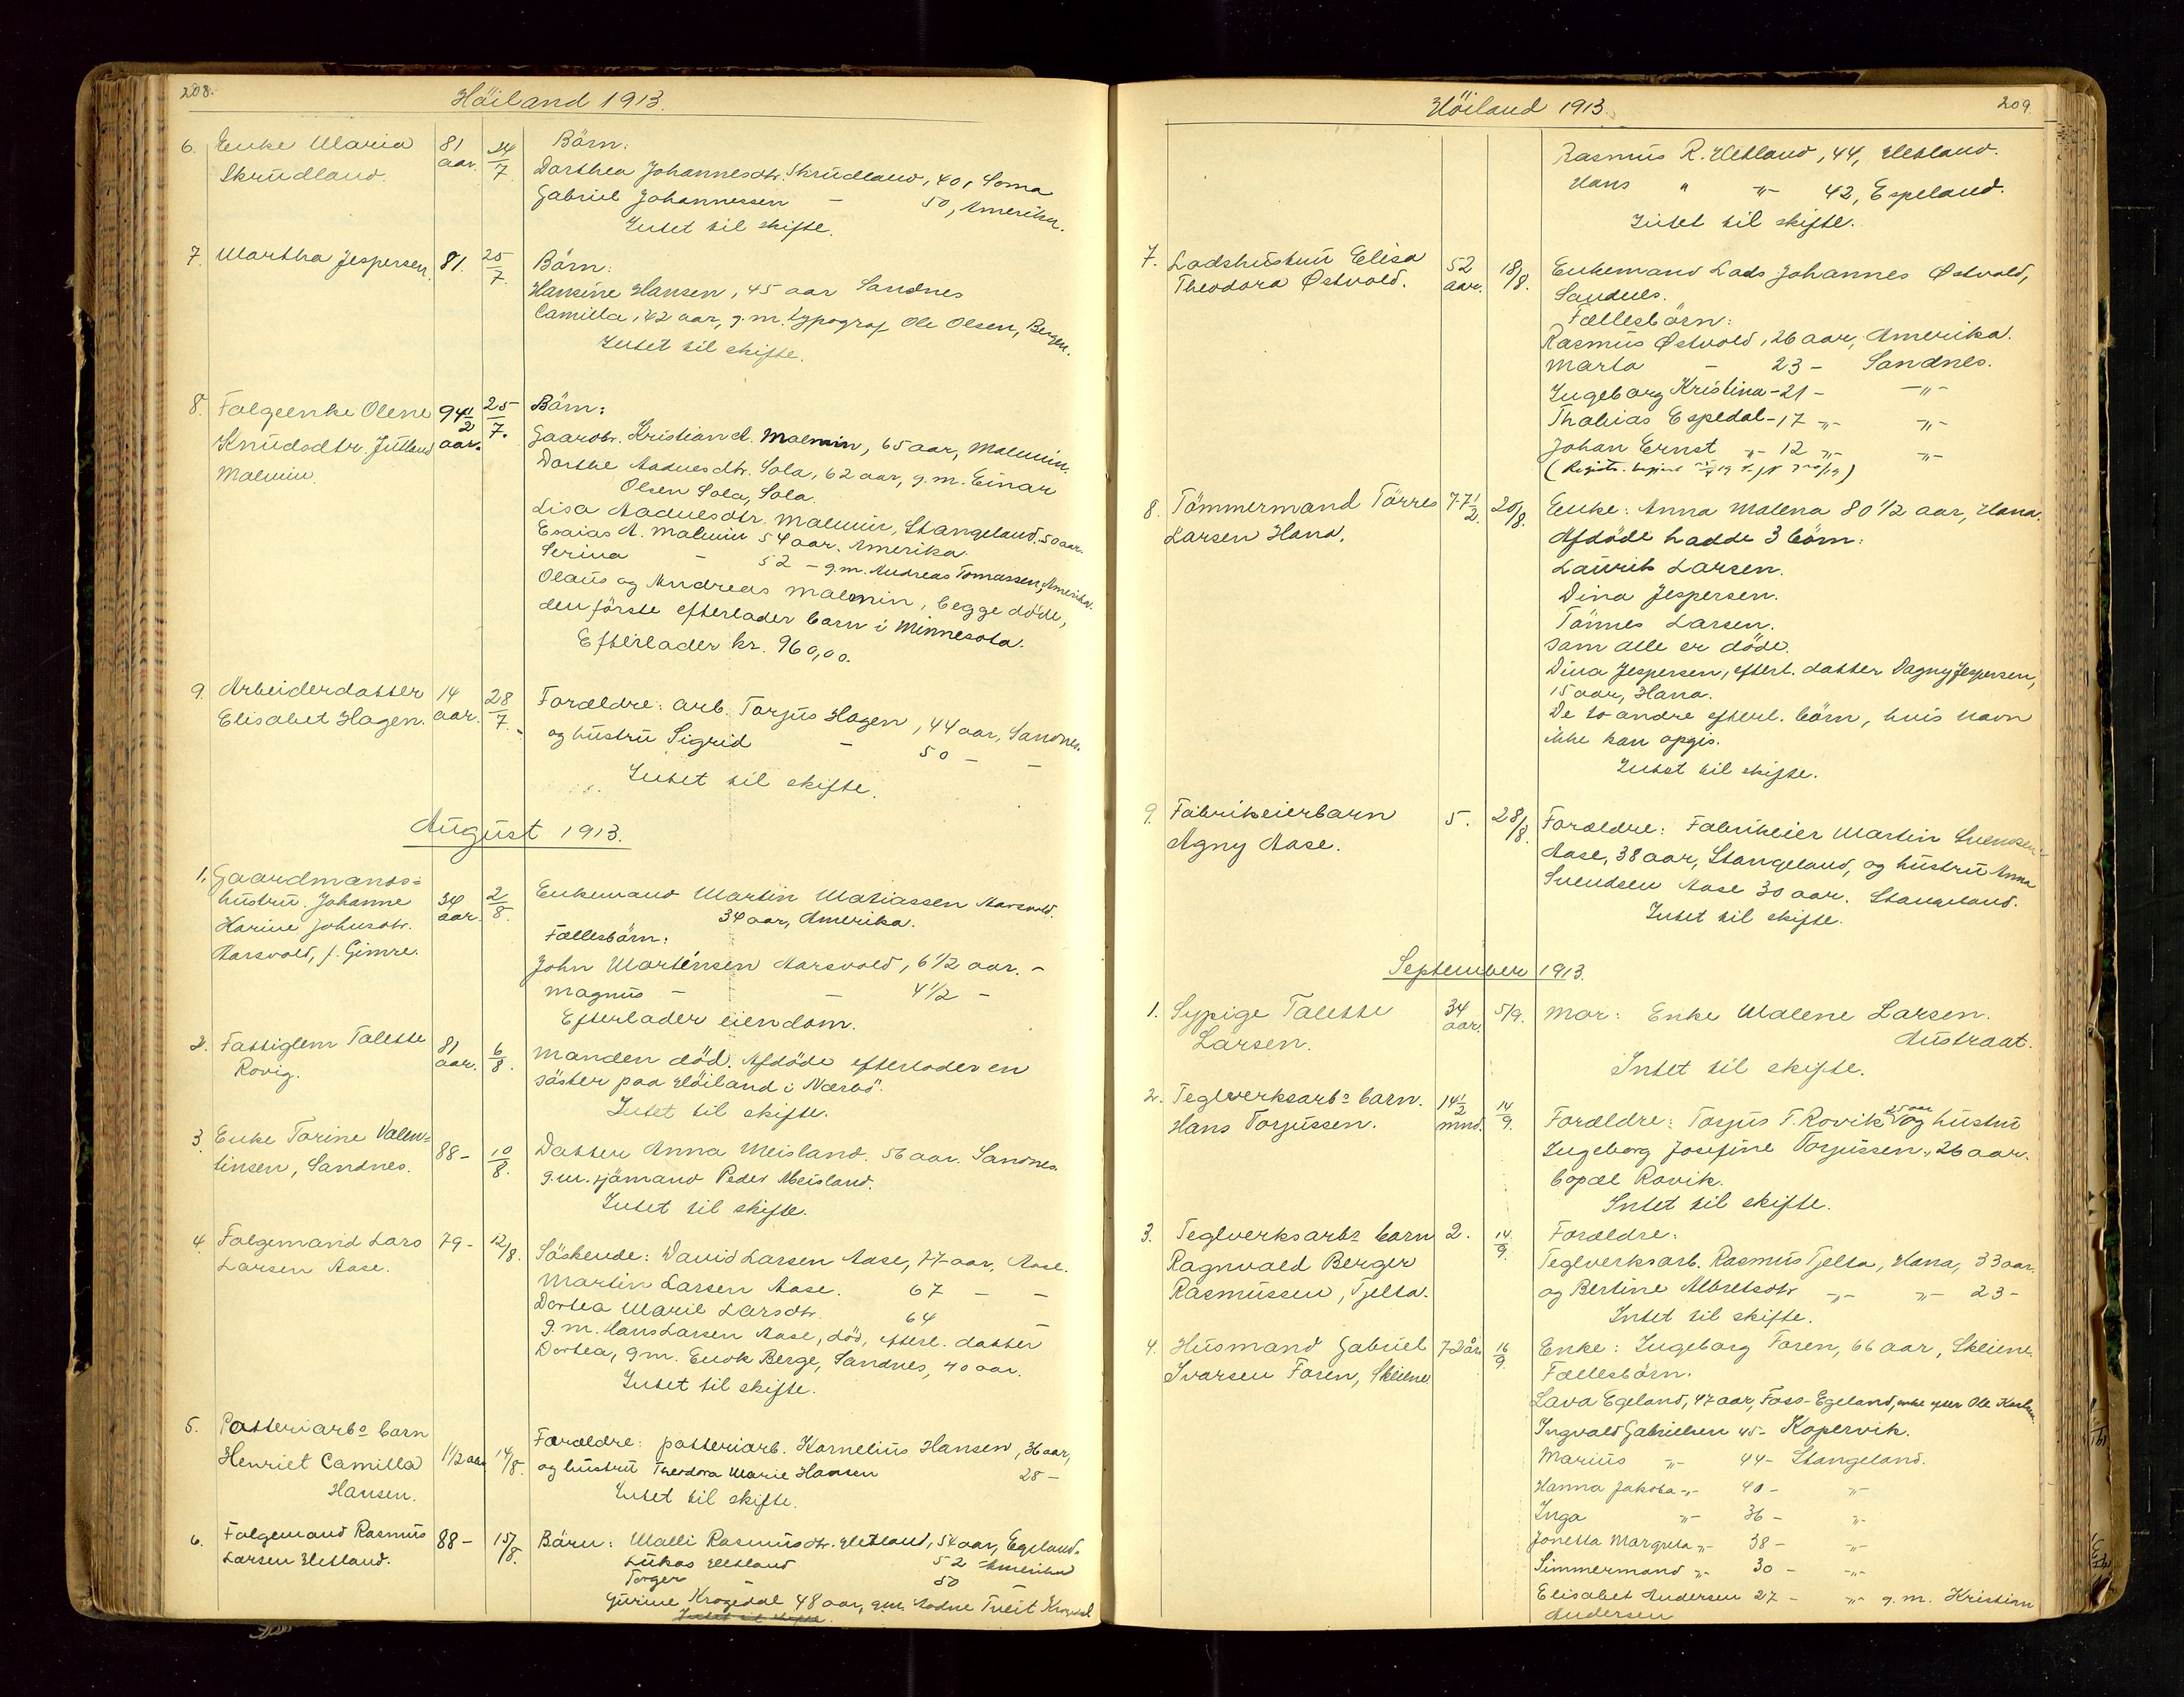 208.
Höiland 1913.
6. Enke Maria 81 24/7 Börn:
Skrudland. aar. Dorthea Johannesdtr. Skrudland, 40, Soma
Gabriel Johannessen - 50, Amerika.
Intet til skifte.
7. Martha Jespersen 81. 25/7. Börn:
Hansine Hansen, 45 aar Sandnes
Camilla, 42 aar, g.m. typograf Ole Olsen, Bergen.
Intet til skifte.
8. Folgeenke Olene 94 1/2 25/7. Börn:
Knudsdtr. Jutland aar. Gaardbr. Kristian A. Malmin, 65 aar, Malmin.
Malmin. Dorthe Aadnesdtr. Sola, 62 aar, g.m. Einar
Olsen Sola, Sola.
Lisa Aadnesdtr. Malmin, Stangeland. 50 aar.
Esaias A. Malmin 54 aar. Amerika.
Serina - 52 - g.m. Andreas Tomassen, Amerika.
Olaus og Andreas Malmin, begge döde,
den förste efterlader barn i Minnesota.
Efterlader kr. 960,00.
9. Arbeiderdatter 14 28/7. Forældre: arb. Torjus Hagen, 44 aar, Sandnes.
Elisabet Hagen. aar. og hustru Sigrid - 50 - -
Intet til skifte.
August 1913.
1. Gaardmands=
hustru Johanne 34 2/8. Enkemand Martin Matiassen Aarsvold.
Harine Johnsdtr. aar. 34 aar, Amerika.
Aarsvold, f. Gimre. Fællesbörn:
John Martinsen Aarsvold, 6 1/2 aar. -
Magnus - - 4 1/2 -
Efterlader eiendom.
2. Fattiglem Talette 81 6/8. Manden död. Afdöde efterlader en
Rovig. aar. söster paa Höiland i Nærbö.
Intet til skifte.
3. Enke Torine Valen= 88 - 10/8. Datter Anna Meisland. 56 aar. Sandnes.
tinsen, Sandnes. g.m. sjömand Peder Meisland.
Intet til skifte.
4. Folgemand Lars 79 - 12/8. Söskende: David Larsen Aase, 77 aar, Aase.
Larsen Aase. Martin Larsen Aase. 67 - -
Dortea Marie Larsdtr. 64 -
g.m. Hans Larsen Aase, död, efterl. datter
Dortea, g.m. Enok Berge, Sandnes, 40 aar.
Intet til skifte.
5. Potteriarbs barn
Henriet Camilla 1 1/2 aar 14/8. Forældre: potteriarb. Kornelius Hansen, 36 aar,
Hansen. og hustru Theodora Marie Hansen 28 -
Intet til skifte.
6. Folgemand Rasmus 88 - 15/8. Börn: Malli Rasmusdtr. Hetland, 54 aar, Egeland.
Larsen Hetland. Lukas Hetland 52 - Amerika
Torger - 50 -
Gurine Krogedal 48 aar, g.m. Aadne Tveit Krogedal
Intet til skifte.
209
Höiland 1913.
Rasmus R. Hetland, 44, Hetland.
Hans " -"- 42, Espeland.
Intet til skifte.
7. Lodshustru Elisa 52 18/8. Enkemand Lods Johannes Østvold,
Theodora Østvold. aar. Sandnes.
Fællesbörn:
Rasmus Østvold, 26 aar, Amerika.
Marta - 23 - Sandnes.
Ingeborg Kristina - 21 - -"-
Thobias Espedal - 17 -"- -"-
Johan Ernst -"- 12 -"- -"-
8. Tömmermand Törres 77 1/2. 20/8. Enke: Anna Malena 80 1/2 aar, Hana.
Larsen Hana. Afdöde hadde 3 börn:
Laurits Larsen.
Dina Jespersen.
Tönnes Larsen.
som alle er döde.
Dina Jespersen, efterl. datter Dagny Jespersen,
15 aar, Hana.
De to andre efterl. börn, hvis navn
ikke kan opgis.
Intet til skifte.
9. Fabrikeierbarn 5. 28/8. Forældre: Fabrikeier Martin Svendsen
Agny Aase. Aase, 38 aar, Stangeland, og hustru Anna
Svendsen Aase 30 aar. Stangeland.
Intet til skifte.
September 1913.
1. Sypige Talette 34 5/9. Mor: Enke Malene Larsen.
Larsen. aar. Austraat.
Intet til skifte.
2. Teglverksarbs barn. 14 1/2 14/9. Forældre: Torjus T. Rovik 25 aar og hustru
Hans Torjussen. mnd. Ingeborg Josefine Torjussen, 26 aar.
bopæl Rovik.
Intet til skifte.
3. Teglverksarbs barn 2. 14/9. Forældre:
Ragnvald Berger Teglverksarb. Rasmus Tjelta, Hana, 33 aar.
Rasmussen, Tjelta. og Bertine Albretsdtr -"- -"- 23 -
Intet til skifte.
4. Husmand Gabriel 72 år 16/9. Enke: Ingeborg Foren, 66 aar, Skeiene.
Ivarsen Foren, Skeiene Fællesbörn.
Lava Egeland, 47 aar, Foss-Egeland, enke efter Ole
Ingvald Gabrielsen 45 - Kopervik.
Marius -"- 44 - Stangeland.
Hanna Jakoba -"- 40 - -"-
Inga -"- 36 - -"-
Jonetta Margreta -"- 38 - -"-
Simmermand -"- 30 - -"-
Elisabet Andersen 27 - -"- g.m. Kristian
Andersen